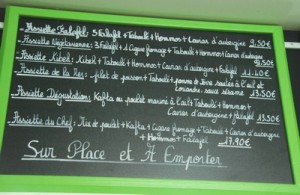 Assiette Falafel: 5 Falafel + Taboulé + Hommos + Caviar d'aubergine 9.50€
Assiette Végétarienne: 3 Falafel + 1 Cigare fromage + Taboulé + Hommos + Caviar d'aubergine 9.90€
Assiette Kibbé: Kibbé + Taboulé + Hommos + Caviar d'aubergine + Falafel 11.60€
Assiette de la Mer: filet de poisson + Taboulé + pomme de terre sautée à l'ail et
coriandre sauce sésame 13.50€
Assiette Dégustation: Kafta ou poulet mariné à l'ail + Taboulé + Hommos +
Caviar d'aubergine + falafel 13.50€
Assiette du Chef: de poulet + Kafta + Cigare fromage + Taboulé + Caviar d'aubergine
+ Hommos + Falafel 17.90€
Sur Place et A Emporter